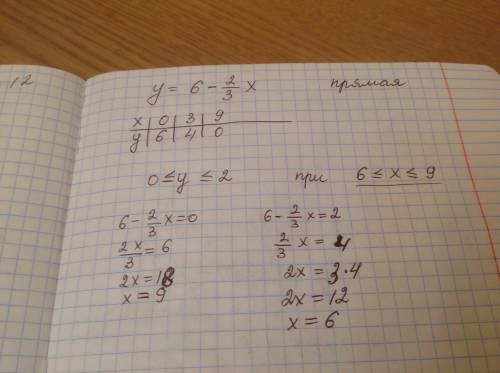 12
y = 6 - 2/3 x прямая
x | 0 | 3 | 9
y | 6 | 4 | 0
0 ≤ y ≤ 2 при 6 ≤ x ≤ 9
6 - 2/3 x = 0
2x/3 = 6
2x = 18
x = 9
6 - 2/3 x = 2
2/3 x = 4
2x = 3·4
2x = 12
x = 6